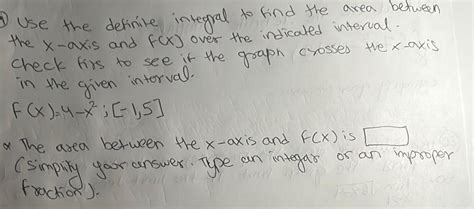 Use the definite integral to find the area between
the x-axis and f(x) over the indicated interval.
Check firs to see if the graph crosses the x-axis
in the given interval.
f(x)=4-x²; [-1,5]
The area between the x-axis and f(x) is
(Simplify your answer. Type an integar or an improper
fraction).